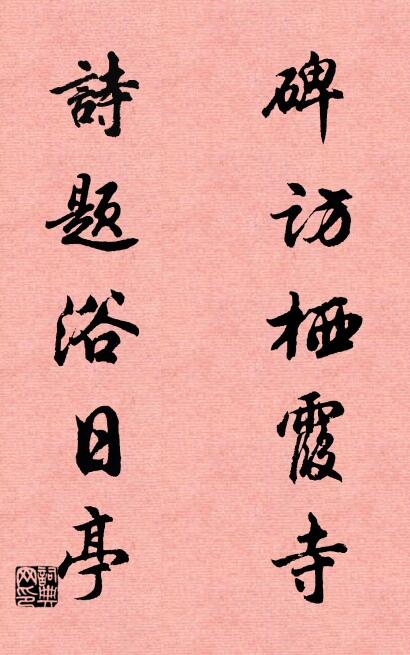 碑访栖霞寺
詩题浴日亭
詞典网印